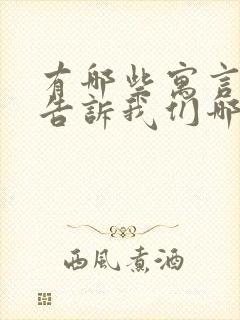 有哪些寓言
告訴我们哪
西風煮酒